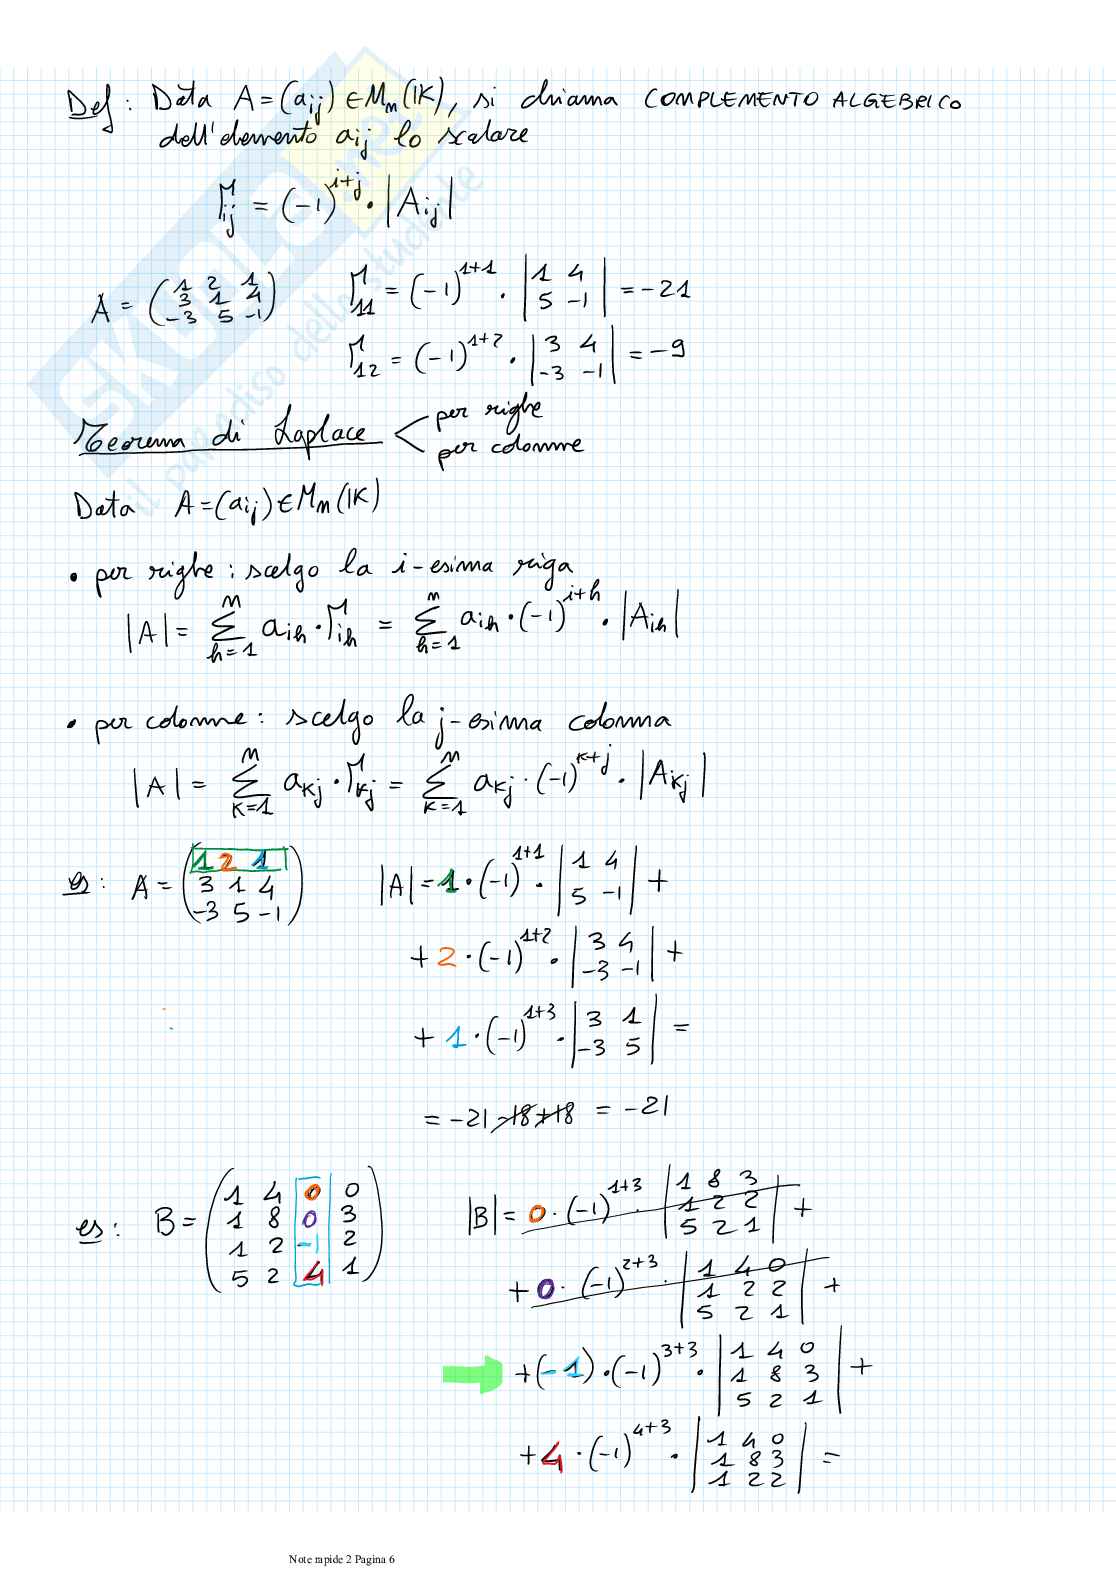 Def: Data A = (aij) ∈ Mn(IK), si chiama COMPLEMENTO ALGEBRICO
dell'elemento aij lo scalare
Γij = (-1)^(i+j) · |Aij|
A = (1 2 1 / 3 1 4 / -3 5 -1) Γ11 = (-1)^(1+1) · |1 4 / 5 -1| = -21
Γ12 = (-1)^(1+2) · |3 4 / -3 -1| = -9
Teorema di Laplace < per righe
per colonne
Data A = (aij) ∈ Mn(IK)
• per righe: scelgo la i-esima riga
|A| = Σ_(h=1)^n aih · Γih = Σ_(h=1)^n aih · (-1)^(i+h) · |Aih|
• per colonne: scelgo la j-esima colonna
|A| = Σ_(K=1)^n aKj · ΓKj = Σ_(K=1)^n aKj · (-1)^(K+j) · |AKj|
es: A = (1 2 1 / 3 1 4 / -3 5 -1) |A| = 1 · (-1)^(1+1) · |1 4 / 5 -1| +
+ 2 · (-1)^(1+2) · |3 4 / -3 -1| +
+ 1 · (-1)^(1+3) · |3 1 / -3 5| =
= -21 -18 +18 = -21
es: B = (1 4 0 0 / 1 8 0 3 / 1 2 -1 2 / 5 2 4 1) |B| = 0 · (-1)^(1+3) · |1 8 3 / 1 2 2 / 5 2 1| +
+ 0 · (-1)^(2+3) · |1 4 0 / 1 2 2 / 5 2 1| +
+ (-1) · (-1)^(3+3) · |1 4 0 / 1 8 3 / 5 2 1| +
+ 4 · (-1)^(4+3) · |1 4 0 / 1 8 3 / 1 2 2| =
Note rapide 2 Pagina 6
SKUOLA.net
il paradiso dello studente